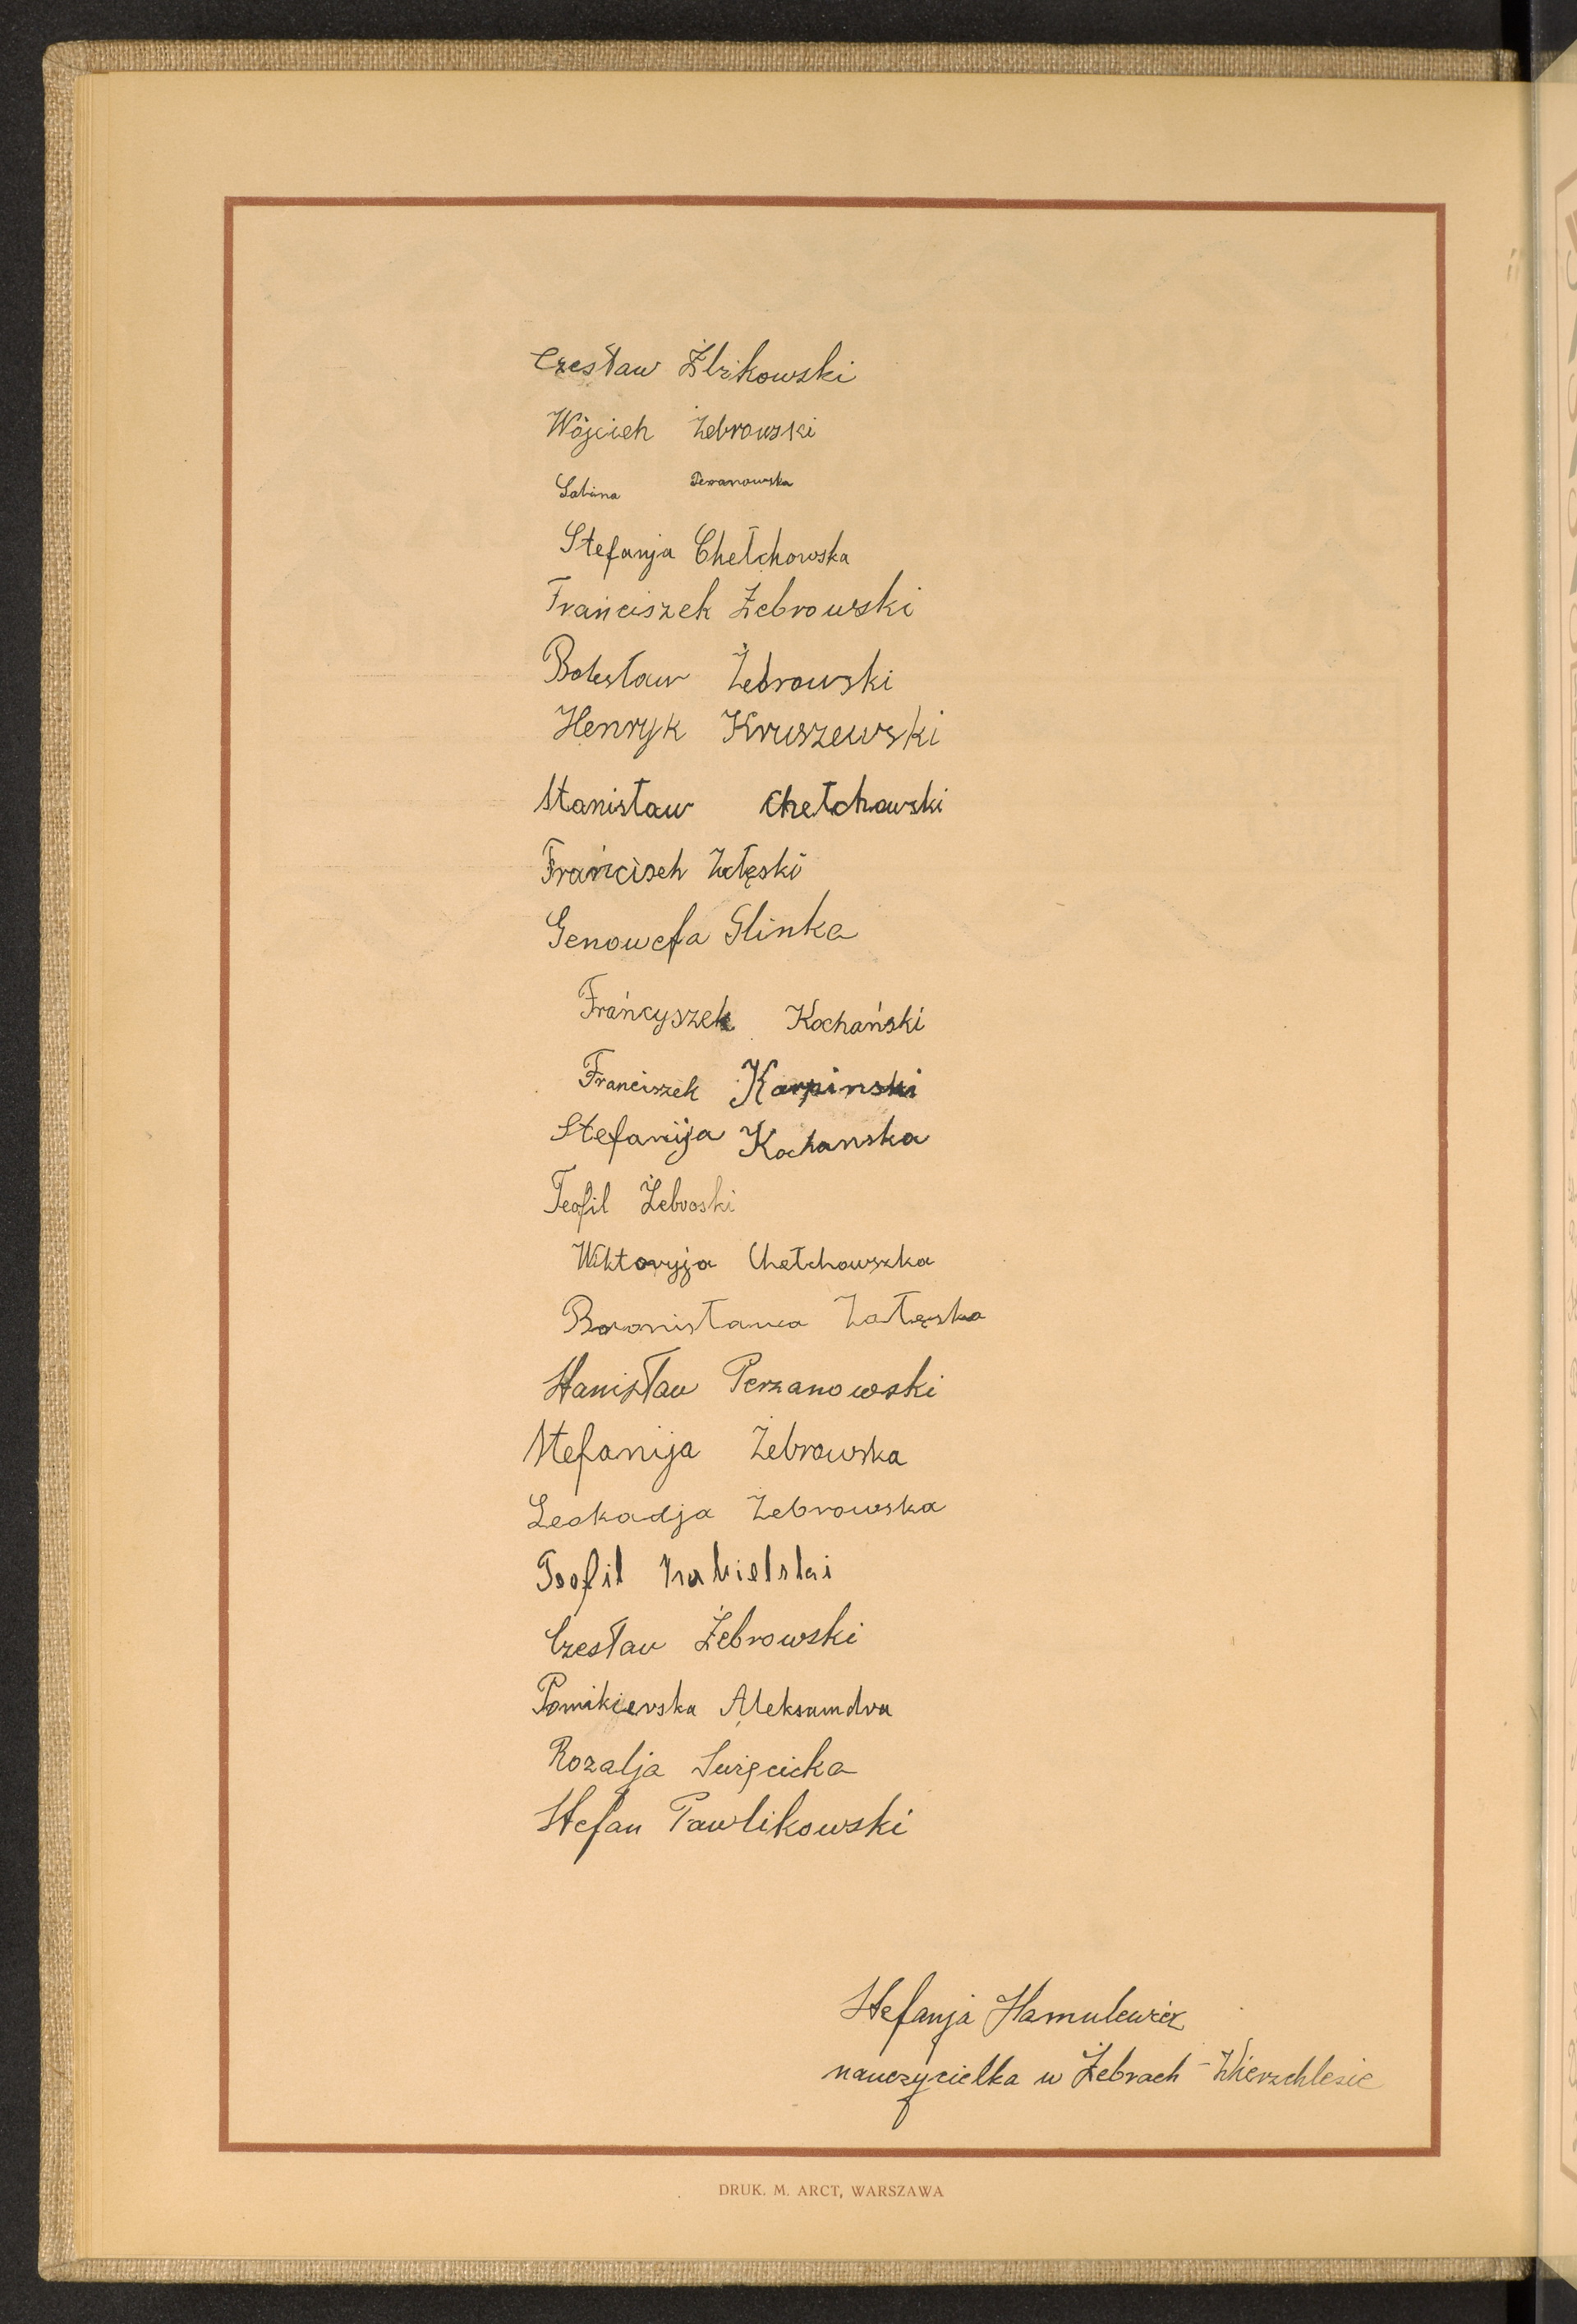 Czesław Żbikowski
Wójcieh Żebrowski
Sabina Perzanowska
Stefanja Chełchowska
Frańciszek Żebrowski
Bolesław Żebrowski
Henryk Kruszewski
Stanisław Chełchowski
Frańcisek Załęski
Genowefa Glinka
Frańcyszek Kochański
Franciszek Karpinski
Stefanija Kochanska
Teofil Żebroski
Wiktoryja Chełchowszka
Bronisława Załęska
Stanisław Perzanowski
Stefanija Żebrowska
Leokadja Żebrowska
Teofil
Czesław Żebrowski
Ponikierska Aleksandra
Rozalja Święcicka
Stefan Pawlikowski
Stefanja Hamulewicz
nauczycielka w Żebrach-Wierzchlesie
DRUK. M. ARCT, WARSZAWA